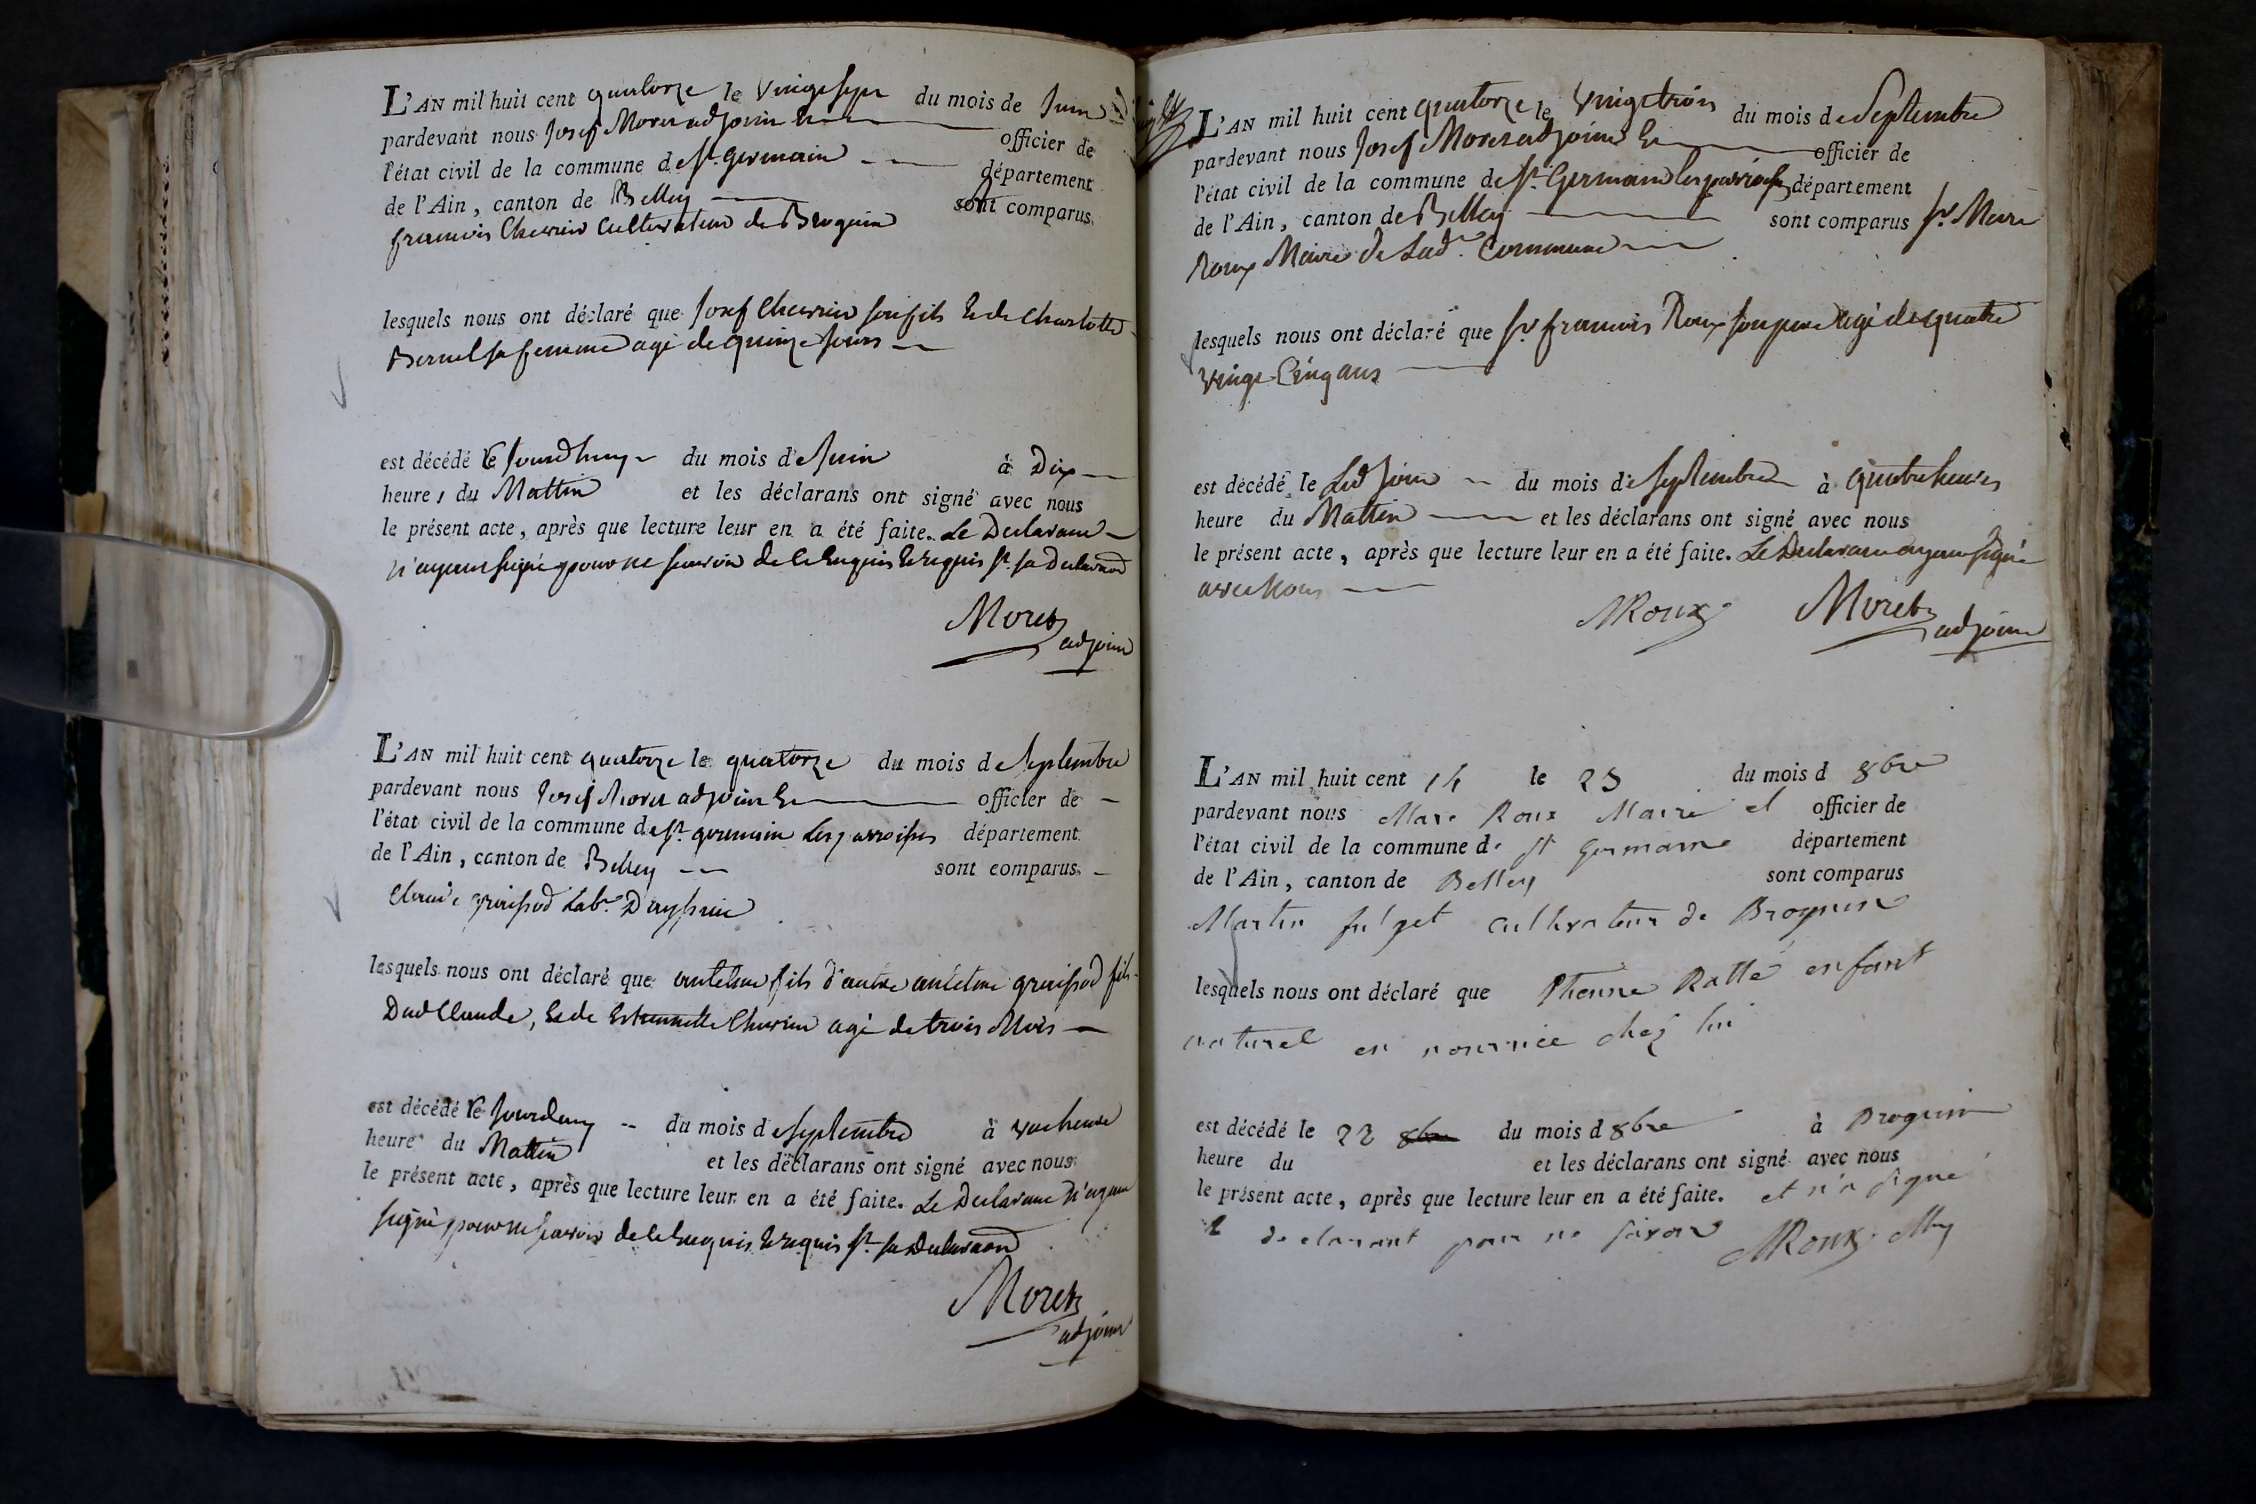 L'AN mil huit cent quatorze le vingt sept du mois de Juin
pardevant nous Josef Moret adjoint Et officier de
l'état civil de la commune de St. Germain département
de l'Ain, canton de Belley sont comparus
francois Chevrier Cultivateur de Brognin
lesquels nous ont déclaré que Josef Chevrier son fils Et de Charlotte
Bernel sa femme agé de quinze Jours
est décédé le Jourdhuy du mois de Juin à Dix
heures du Mattin et les déclarans ont signé avec nous
le présent acte, après que lecture leur en a été faite. Le Declarant
n'ayant signé pour ne scavoir de ce Enquis Et requis St. sa Declaraon
Moret
adjoint
L'AN mil huit cent quatorze le quatorze du mois de Septembre
pardevant nous Josef Moret adjoint Et officier de
l'état civil de la commune de St. germain les parroisses département
de l'Ain, canton de Belley sont comparus
Claude graissod Labr.
lesquels nous ont déclaré que antelme fils d'autre antelme graissod fils
Dud Claude, Et de Estiennette Chevrier agé de trois Mois
est décédé le Jourdhuy du mois de Septembre à une heure
heure du Mattin et les déclarans ont signé avec nous
le présent acte, après que lecture leur en a été faite. Le Declarant N'ayant
signé pour ne scavoir de ce Enquis Et requis St. sa Declaraon
Moret
adjoint
L'AN mil huit cent quatorze le vingt trois du mois de Septembre
pardevant nous Josef Moret adjoint Et officier de
l'état civil de la commune de St. Germain les parroisses département
de l'Ain, canton de Belley sont comparus Sr. Marc
Roux Maire de Lad. Commune
lesquels nous ont déclaré que Sr. francois Roux son pere agé de quatre
vingt Cinq ans
est décédé le Lud Jour du mois de Septembre à quatre heures
heure du Mattin et les déclarans ont signé avec nous
le présent acte, après que lecture leur en a été faite. Le Declarant ayant signé
avec Nous
MRoux Moret
adjoint
L'AN mil huit cent 14 le 23 du mois d 8bre
pardevant nous Marc Roux Maire et officier de
l'état civil de la commune de St Germain département
de l'Ain, canton de Belley sont comparus
Martin cultivateur de Brognin
lesquels nous ont déclaré que Ratte enfant
naturel en nourrice chez lui
est décédé le 22 8bre du mois d 8bre à Brognin
heure du et les déclarans ont signé avec nous
le présent acte, après que lecture leur en a été faite. et n'a signé
le declarant pour ne savoir MRoux